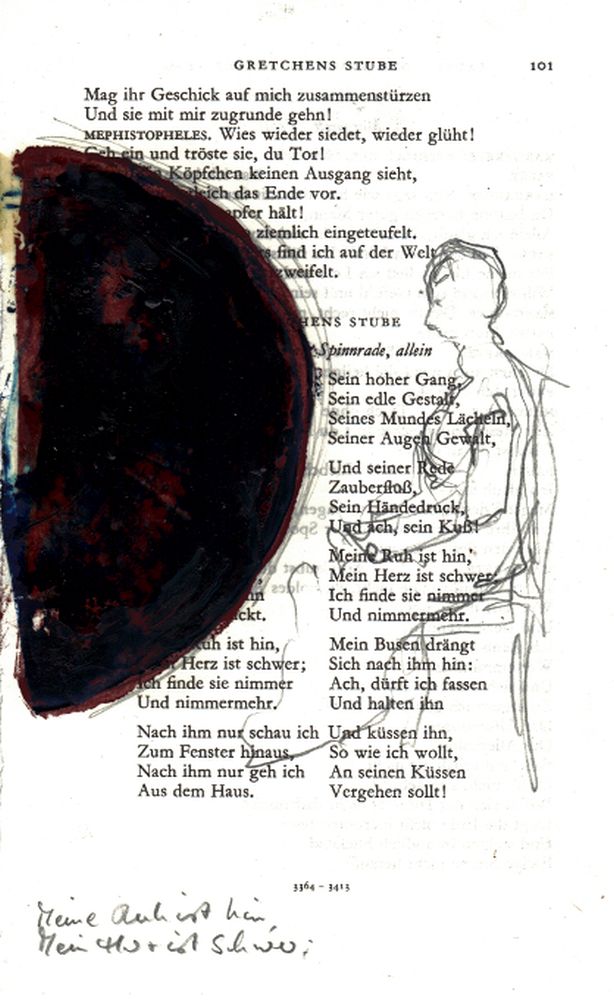 GRETCHENS STUBE 101
Mag ihr Geschick auf mich zusammenstürzen
Und sie mit mir zugrunde gehn!
MEPHISTOPHELES. Wies wieder siedet, wieder glüht!
Geh ein und tröste sie, du Tor!
Köpfchen keinen Ausgang sieht,
das Ende vor.
hält!
ziemlich eingeteufelt.
find ich auf der Welt
STUBE
Spinnrade, allein
ist hin,
Herz ist schwer;
Ich finde sie nimmer
Und nimmermehr.
Nach ihm nur schau ich
Zum Fenster hinaus,
Nach ihm nur geh ich
Aus dem Haus.
Sein hoher Gang,
Sein edle Gestalt,
Seines Mundes Lächeln,
Seiner Augen Gewalt,
Und seiner Rede
Zauberfluß,
Sein Händedruck,
Und ach, sein Kuß!
Meine Ruh ist hin,
Mein Herz ist schwer;
Ich finde sie nimmer
Und nimmermehr.
Mein Busen drängt
Sich nach ihm hin:
Ach, dürft ich fassen
Und halten ihn
Und küssen ihn,
So wie ich wollt,
An seinen Küssen
Vergehen sollt!
3364 – 3413
Meine Ruh ist hin,
Mein Herz ist schwer;